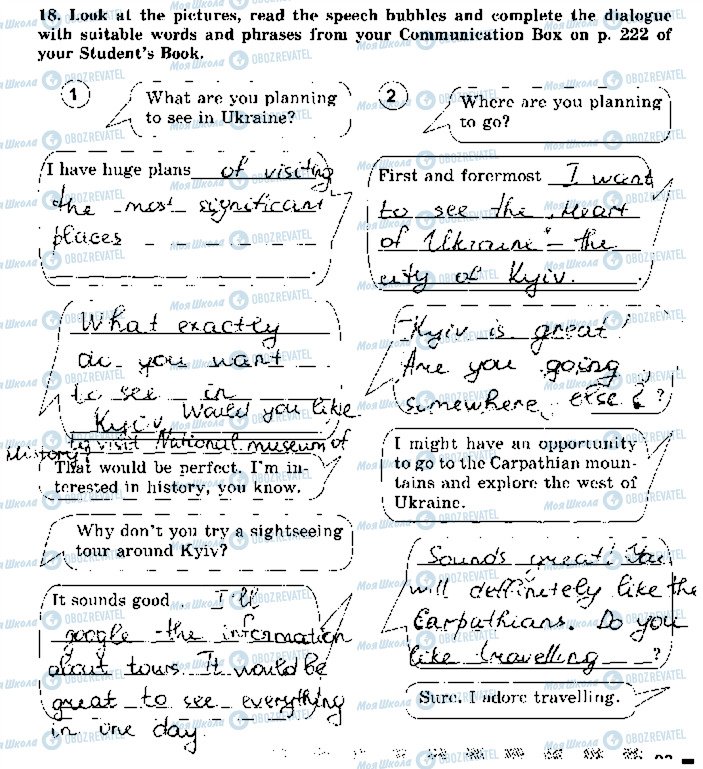 18. Look at the pictures, read the speech bubbles and complete the dialogue
with suitable words and phrases from your Communication Box on p. 222 of
your Student's Book.
1
What are you planning
to see in Ukraine?
I have huge plans of visiting
the most significant
places
.
What exactly
do you want
to see in
Kyiv. Would you like
to visit National museum of
History?
That would be perfect. I'm in-
terested in history, you know.
Why don't you try a sightseeing
tour around Kyiv?
It sounds good. I'll
google the information
about tours. It would be
great to see everything
in one day.
2
Where are you planning
to go?
First and foremost I want
to see the "Heart
of Ukraine" – the
city of Kyiv.
Kyiv is great!
Are you going
somewhere else ?
I might have an opportunity
to go to the Carpathian moun-
tains and explore the west of
Ukraine.
Sounds great! You
will deffinetely like the
Carpathians. Do you
like travelling ?
Sure. I adore travelling.
Моя Школа OBOZREVATEL